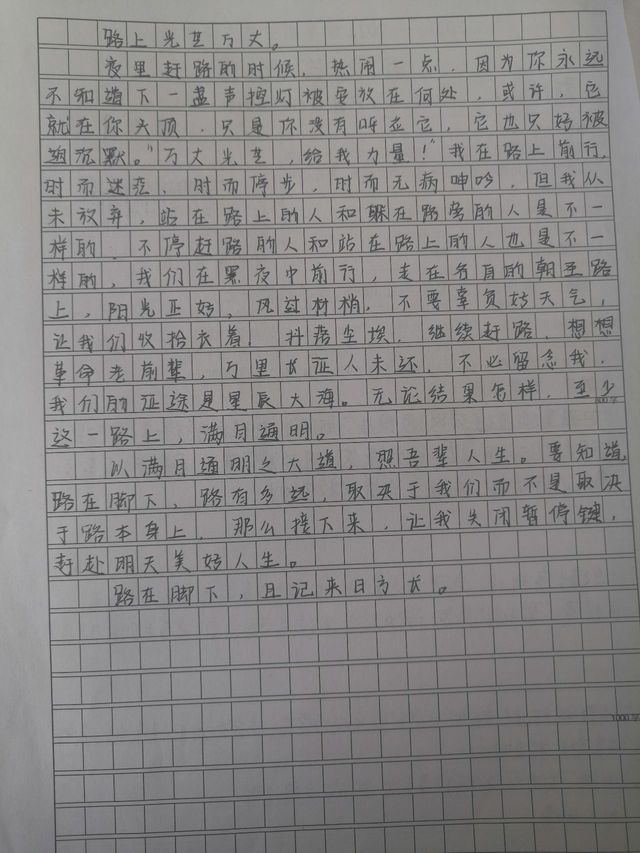 路上光芒万丈。
夜里赶路的时候，热闹一点，因为你永远
不知道下一盏声控灯被安放在何处，或许，它
就在你头顶，只是你没有呼应它，它也只好被
迫沉默。"万丈光芒，给我力量！"我在路上前行，
时而迷茫，时而停步，时而无病呻吟，但我从
未放弃，站在路上的人和躲在路旁的人是不一
样的，不停赶路的人和站在路上的人也是不一
样的，我们在黑夜中前行，走在各自的朝圣路
上，阳光正好，风过树梢，不要辜负好天气，
让我们收拾衣着，抖落尘埃，继续赶路，想想
革命老前辈，万里长征人未还，不必留念我，
我们的征途是星辰大海。无论结果怎样，至少
这一路上，满月通明。
800字
以满月通明之大道，照吾辈人生。要知道，
路在脚下，路有多远，取决于我们而不是取决
于路本身上，那么接下来，让我关闭暂停键，
奔赴明天美好人生。
路在脚下，且记来日方长。
1000字